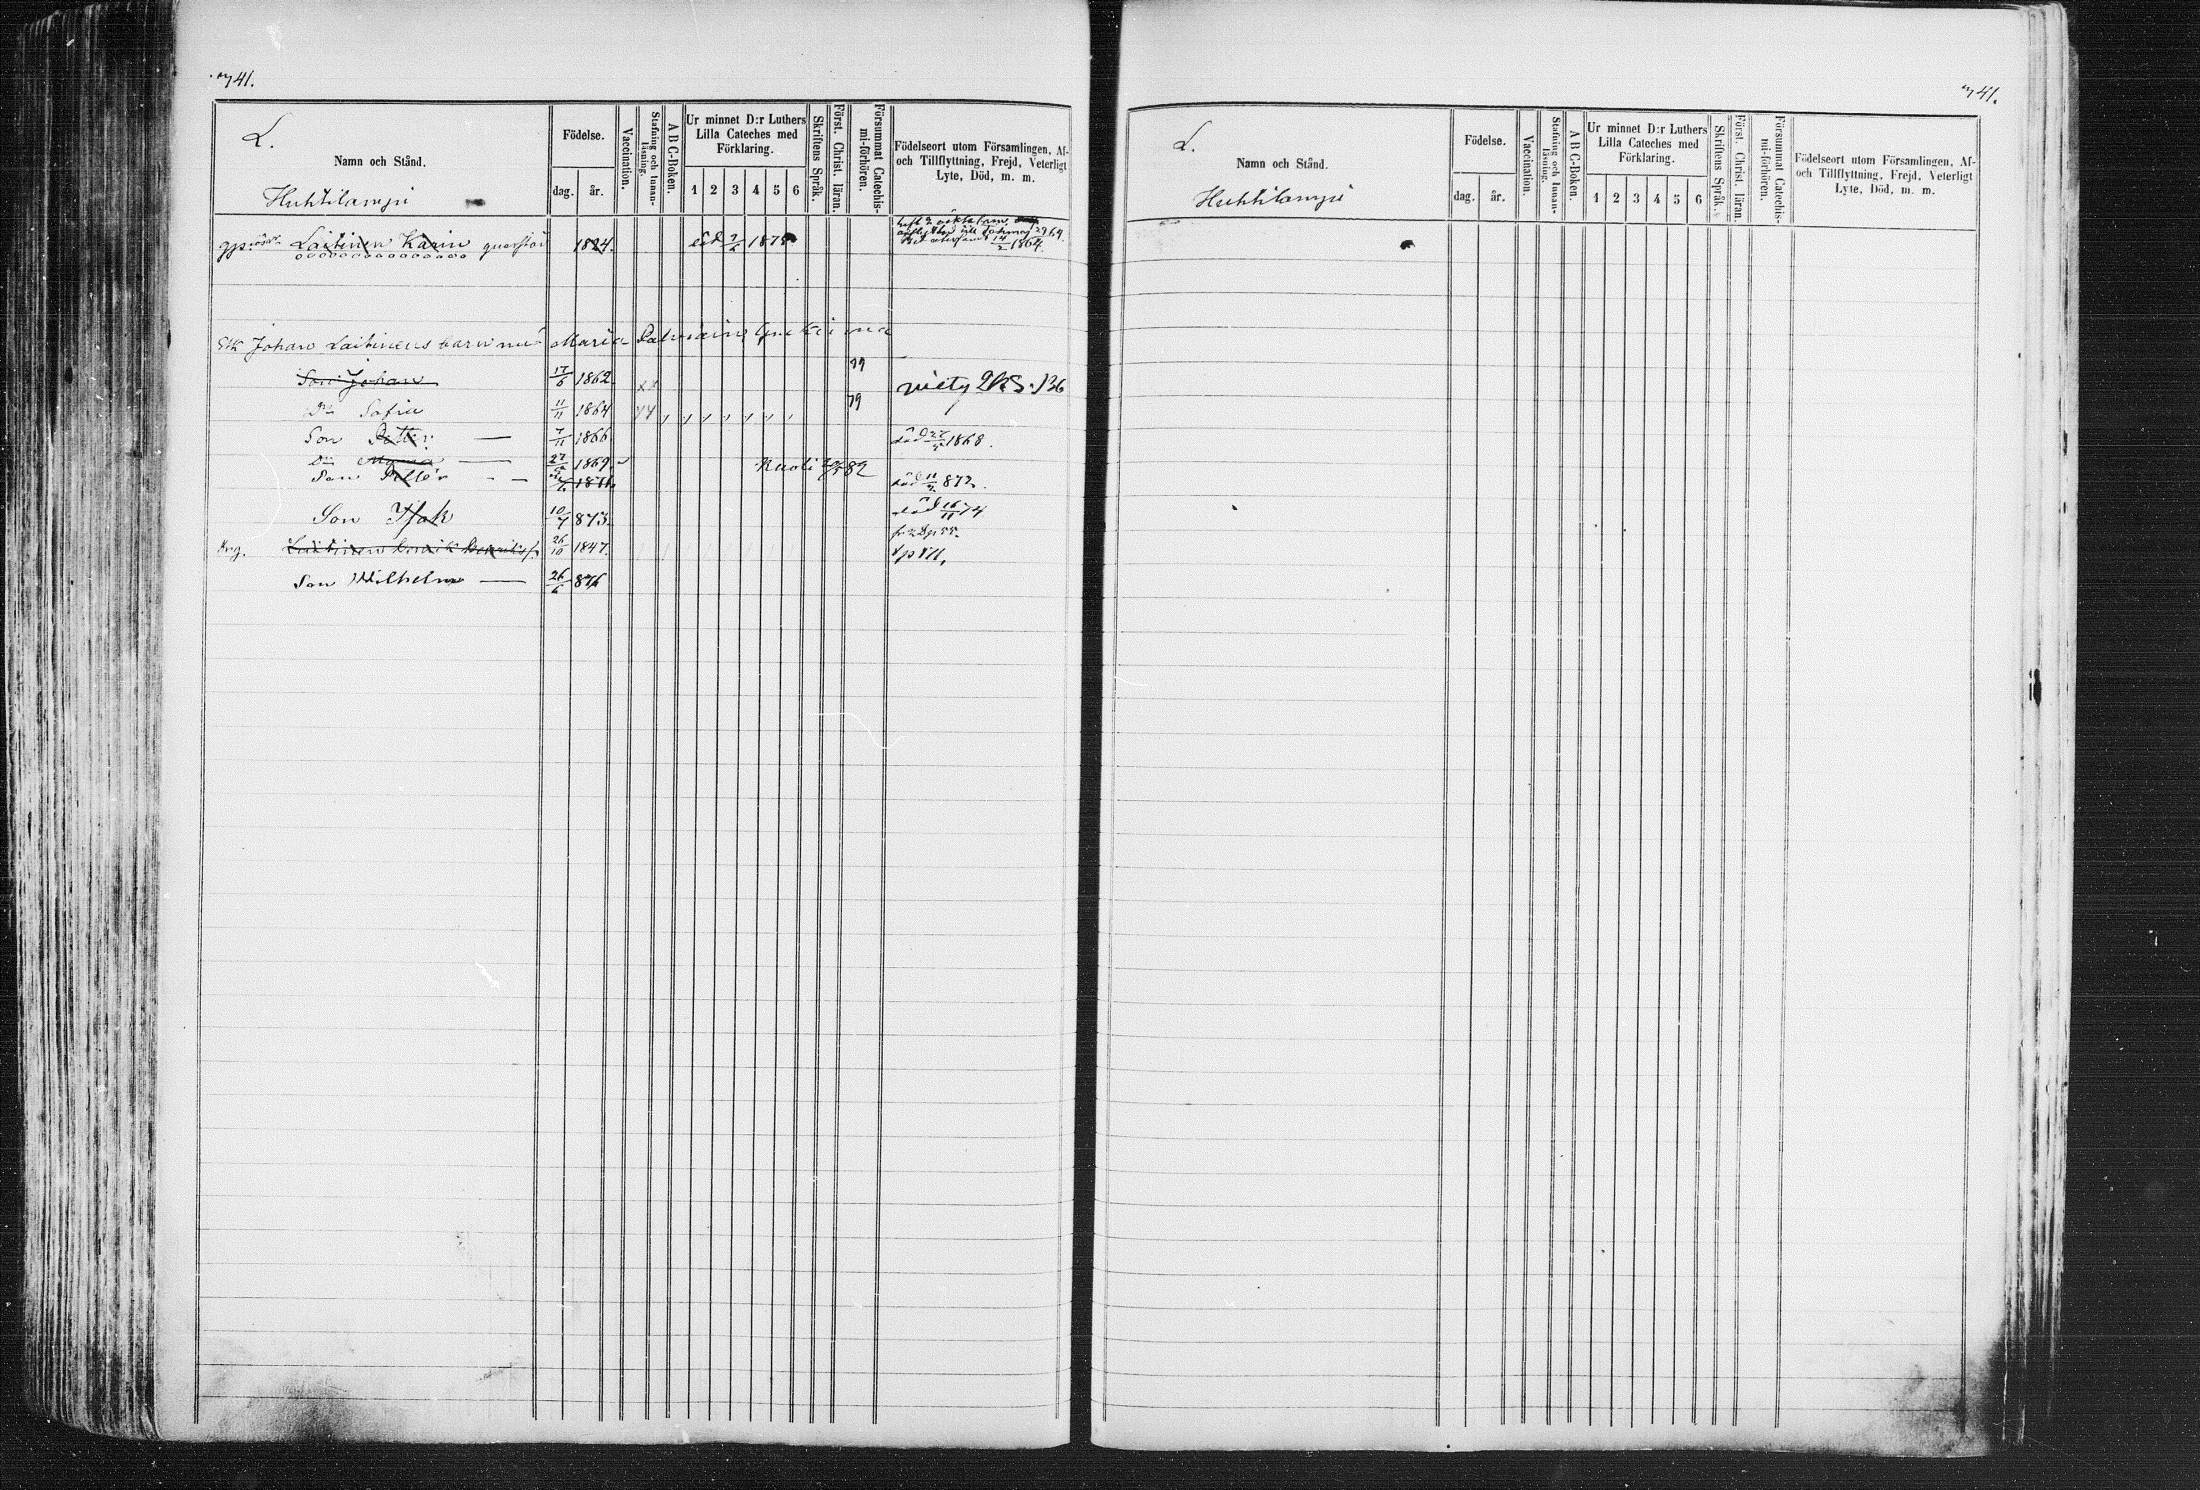 741.
L.
Namn och Stånd.
Huhtilampi
Födelse.
dag. år.
Vaccination.
Stafning och Innan-läsning.
A B C-Boken.
Ur minnet D:r Luthers
Lilla Cateches med
Förklaring.
1 2 3 4 5 6
Skriftens Språk.
Först. Christ. läran.
Försummat Catechis-mi-förhören.
Födelseort utom Församlingen, Af-
och Tillflyttning, Frejd, Veterligt
Lyte, Död, m. m.
Laitinen Karin 1824. död 7/6 1875
14/2 1864.
Johan Laitinens Maria
Son Johan 17/6 1862. 79 136
Dr Sofia 11/11 1864 79
Son Petter — 7/11 1866 död 1868.
Dr — 27 1869. Kuoli 82
Son Petter - - 1871. död 11 872.
Son Isak 10/7 873. död 16/11 74
Laitinen Henrik Henrikss. 26/10 1847.
Son Wilhelm — 26/6 876
741.
L.
Namn och Stånd.
Huhtilampi
Födelse.
dag. år.
Vaccination.
Stafning och Innan-läsning.
A B C-Boken.
Ur minnet D:r Luthers
Lilla Cateches med
Förklaring.
1 2 3 4 5 6
Skriftens Språk.
Först. Christ. läran.
Försummat Catechis-mi-förhören.
Födelseort utom Församlingen, Af-
och Tillflyttning, Frejd, Veterligt
Lyte, Död, m. m.